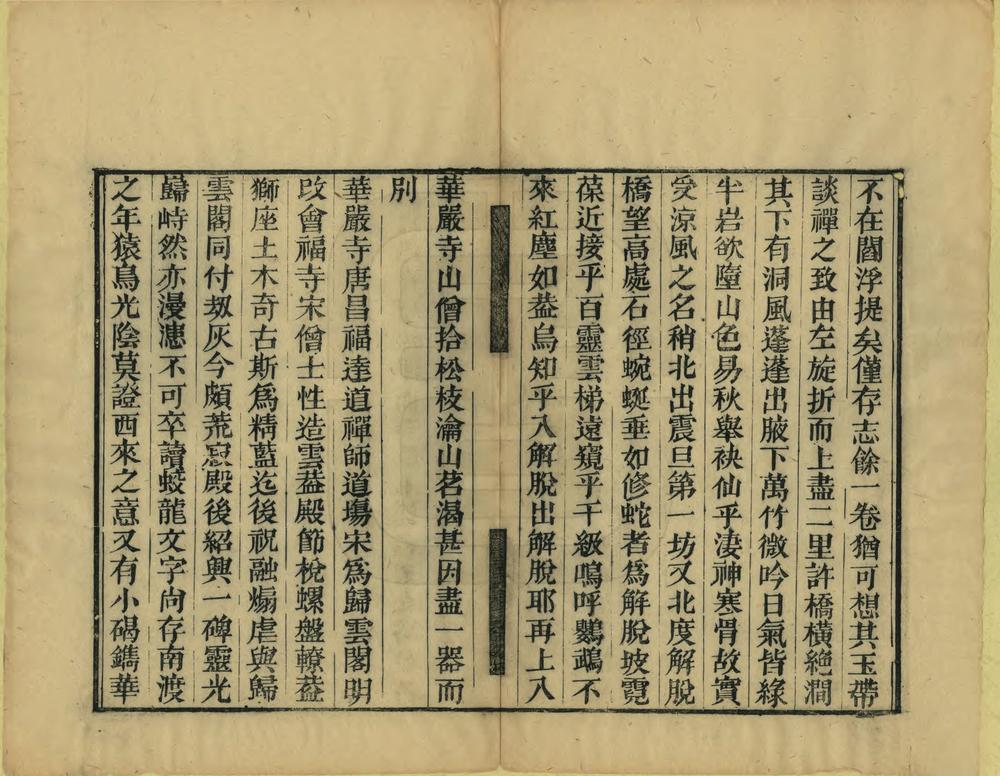 不在閻浮提矣僅存志餘一卷猶可想其玉帶
談禪之致由左旋折而上盡二里許橋橫絶澗
其下有洞風蓬蓬出腋下萬竹微吟日氣皆綠
半岩欲墮山色易秋舉袂仙乎淒神寒骨故實
受涼風之名稍北出震旦第一坊又北度解脫
橋望高處石徑蜿蜒垂如修蛇者爲解脫坡霓
葆近接乎百靈雲梯遠窺乎千級鳴呼鸚鵡不
來紅塵如葢烏知乎入解脫出解脫耶再上入
華嚴寺山僧拾松枝瀹山茗渴甚因盡一器而
別
華嚴寺唐昌福達道禪師道塲宋爲歸雲閣明
改會福寺宋僧士性造雲葢殿節梲螺盤轑葢
獅座土木奇古斯爲精藍迄後祝融煽虐與歸
雲閣同付刼灰今頗荒寂殿後紹興一碑靈光
巋峙然亦漫漶不可卒讀蛟龍文字尚存南渡
之年猿鳥光陰莫證西來之意又有小碣鐫華